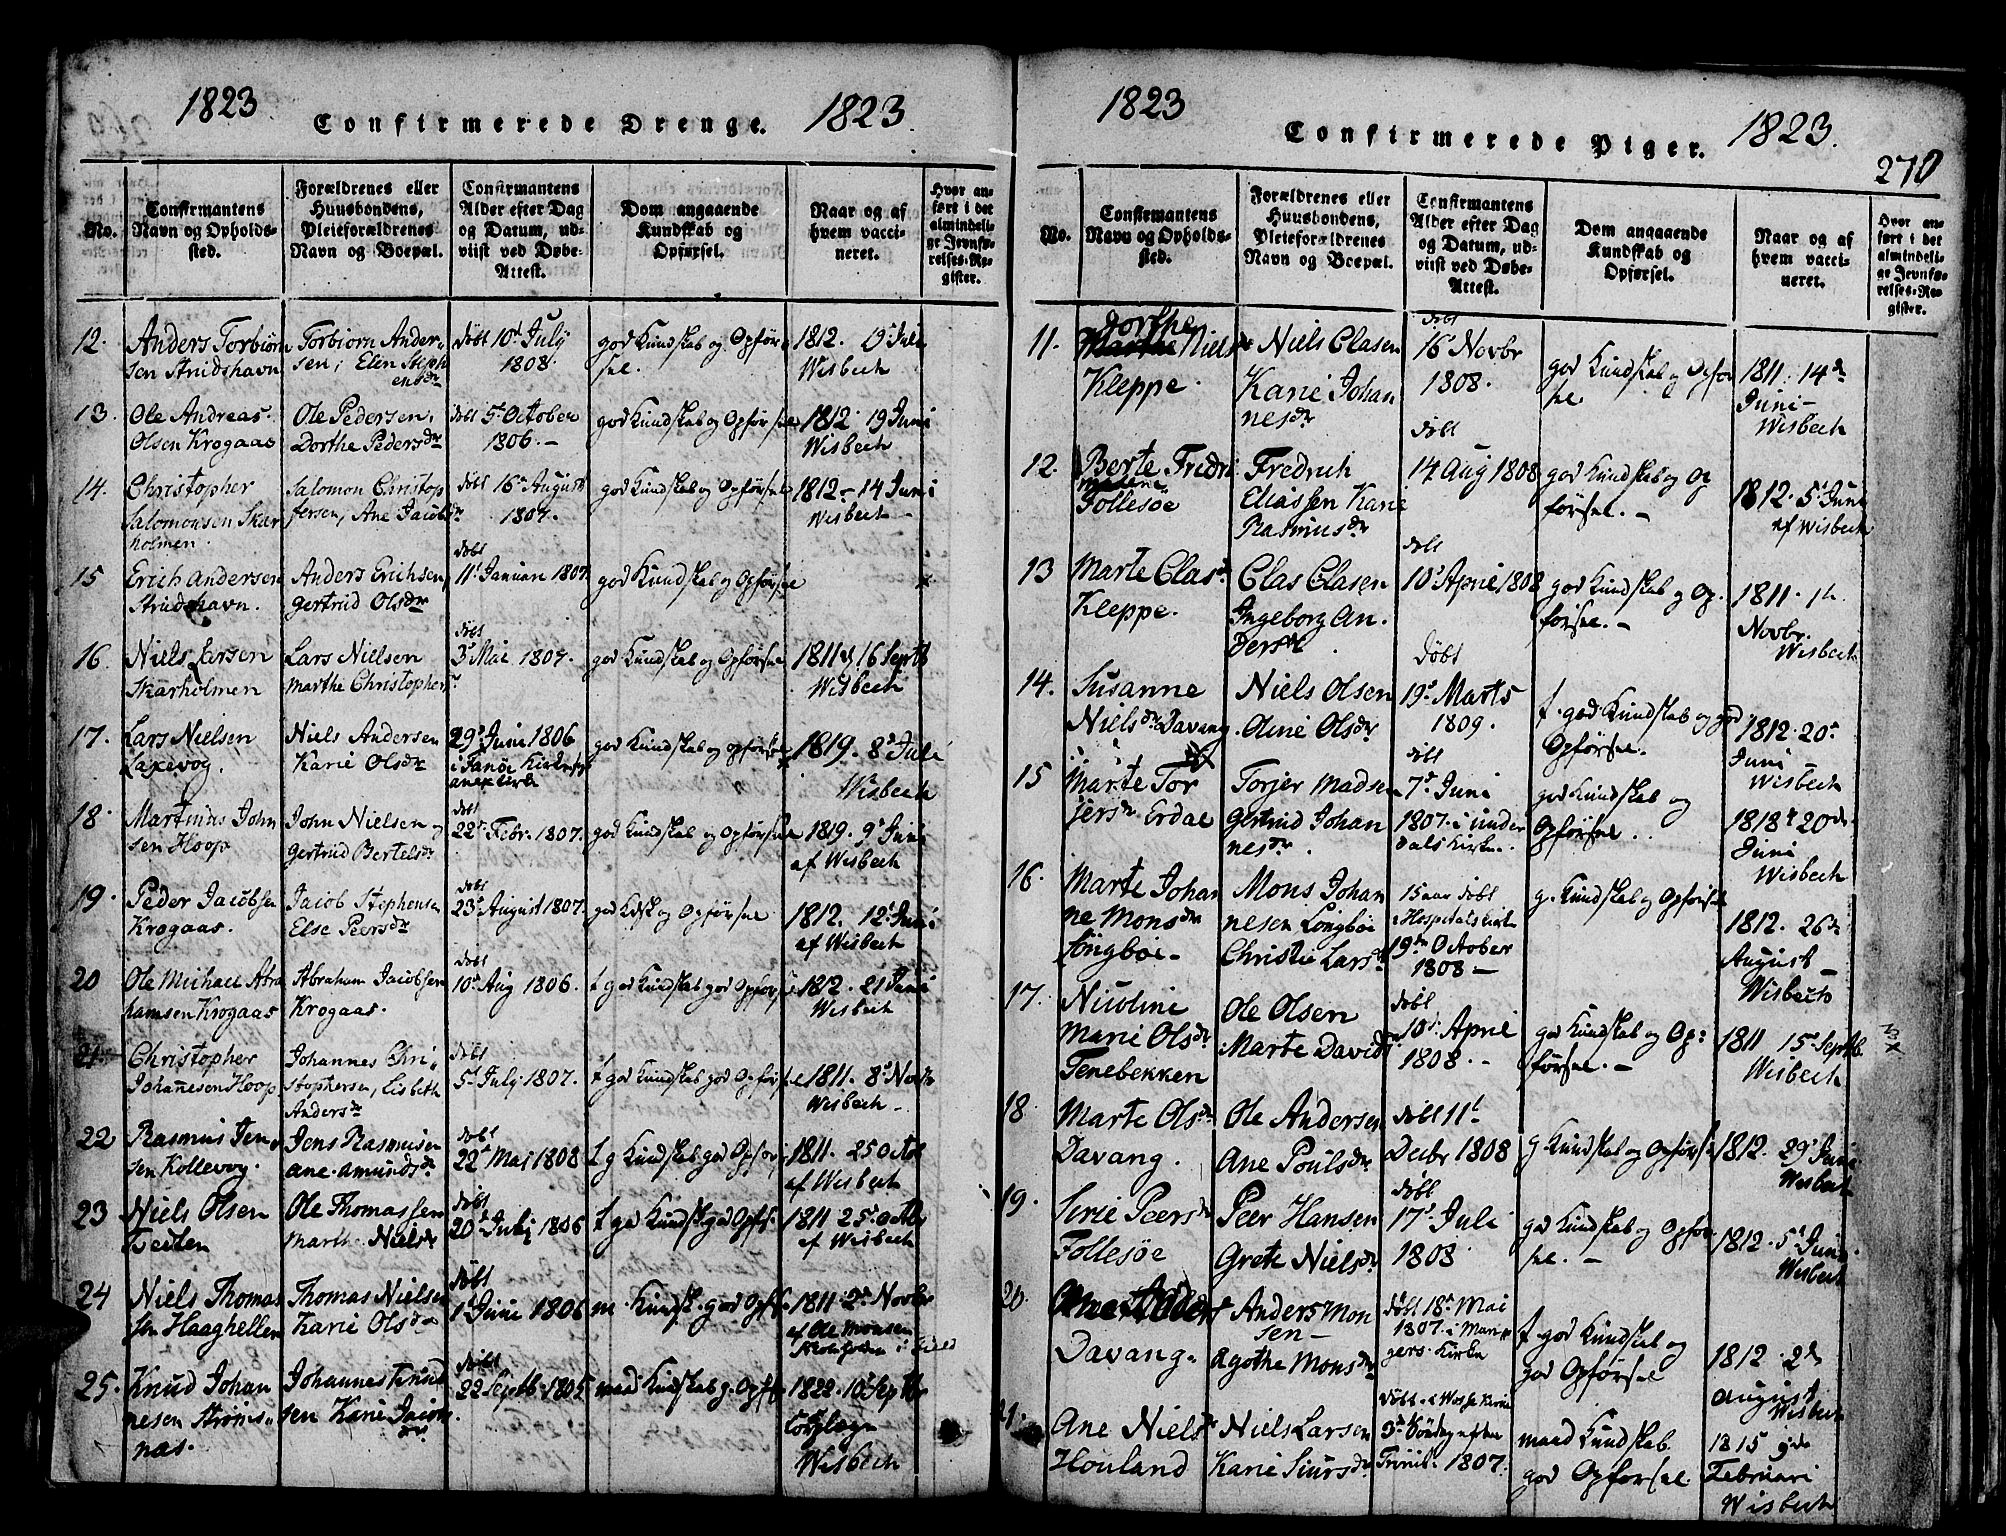 1823 Confirmerede Drenge. 1823.
No.
Confirmantens
Navn og Opholds-
sted.
Forældrenes eller
Huusbondens,
Pleieforældrenes
Navn og Boepæl.
Confirmantens
Alder efter Dag
og Datum, ud-
viist ved Døbe-
Attest.
Dom angaaende
Kundskab og
Opførsel.
Naar og af
hvem vacci-
neret.
Hvor an-
ført i det
almindeli-
ge Jevnfø-
relses-Re-
gister.
12. Anders Torbiørn
sen Strudshavn
Torbiorn Ander
sen, Elen Steph
ensdr
døbt 10d July
1808.
god Kundskab og Opfør
sel.
1812. 9d Juli
Wisbech
13. Ole Andreas
Olsen Krogaas
Ole Pedersen,
Dorthe Pedersdr
døbt 5d October
1806.-
god Kundskab og Opførsel
1812 19 Juni
Wisbech
14. Christopher
Salomonsen Skar
holmen.
Salomon Christop
fersen, Ane Jacobsdr
døbt 16d August
1807.
god Kundskab og Opførsel
1812- 14 Juni
Wisbech
15 Erich Andersen
Strudshavn.
Anders Erichsen,
Gertrud Olsdr
døbt
11d Januari 1807.
god Kundskab og Opførsel
16. Niels Larsen
Skarholmen
Lars Nielsen
Marthe Christophersdr
døbt
3d Mai 1807.
god Kundskab og Opførsel
1811 16 Septb
Wisbech
17. Lars Nielsen
Laxevog.
Niels Andersen
Karie Olsdr
29d Juni 1806
i Fanöe
anex Kirke
god Kundskab og opførsel
1819. 8d Juli
Wisbech
18. Martinus John
sen Hoop
John Nielsen
Gertrud Bertelsdr
døbt
22d Febr. 1807.
god Kundskab og Opførsel
1819. 9d Juni
af Wisbech
19. Peder Jacobsen
Krogaas.
Jacob Stephensen
Else Peersdr
døbt
23d August 1807.
god Kdsk og Opførsel
1812. 12d Juni
af Wisbech
20 Ole Michael Abra
hamsen Krogaas
Abraham Jacobsen
Krogaas.
døbt
10d Aug 1806.
t god Kundskab god Opførsel
1812. 21 Juni
Wisbech
21. Christopher
Johanesen Hoop
Johannes Chri
stophersen, Lisbeth
Andersdr
døbt
5d July 1807.
t god Kundskab god Opførsel
1811. 8d Novb
Wisbech
22 Rasmus Jen
sen Kollevog.
Jens Rasmusen
ane amundsdr
døbt
22d Mai 1808
t g Kundskab god Opfør
1811. 25 Octb
af Wisbech
23 Niels Olsen
Ole Thomassen
Marthe Nielsdr
døbt
20d Julj 1806
t go Kundsk god Opfs.
1811 25d Octb
af Wisbech
24 Niels Thomas
sen Haaghellen
Thomas Nielsen
Karie Olsdr
døbt
1d Juni 1806
m. Kundsk. god Opfs
1811. 2d Novbr
af Ole Monsen
25. Knud Johan
nesen Strøms
næs.
Johannes Knud
sen Karie Jacobs
dr
døbt
22 Septb. 1805
maad Kundskab g. Opfs
1822. 10d Septbr
Wisbech
1823 Confirmerede Piger. 1823.
270
No.
Confirmantens
Navn og Opholds-
sted.
Forældrenes eller
Huusbondens,
Pleieforældrenes
Navn og Boepæl.
Confirmantens
Alder efter Dag
og Datum, ud-
viist ved Døbe-
Attest.
Dom angaaende
Kundskab og
Opførsel.
Naar og af
hvem vacci-
neret.
Hvor an-
ført i det
almindeli-
ge Jevnfø-
relses-Re-
gister.
11. Dorthe
Marthe Nielsdr
Kleppe.
Niels Clasen
Karie Johan
nesdr
døbt
16d Novbr
1808.
god Kundskab og Opfør
sel
1811. 14de
Juni-
Wisbech
12. Berte Fredri
Follesöe
Fredrich
Eliassen Karie
Rasmusdr
døbt
14 Aug 1808
god Kundskab og Op
førsel.-
1812. 5d Juni
af Wisbech
13 Marte Clasdr
Kleppe.
Clas Clasen
Ingeborg An.
dersdr
døbt
10d April 1808
god Kundskab og Op.
førsel.-
1811. 1te
Novbr.
Wisbech
14. Susanne
Nielsdr Davang
Niels Olsen
Oline Olsdr
døbt
19d Marts
1809.
t. god Kundskab og god
Opførsel.
1812. 20d
Juni-
Wisbech
15 Marte Tor
jersdr Erdal
Torjer Madsen
Gertrud Johan
nesdr.
døbt
7d Juni
1807. i Under
dals Kirke.
god Kundskab og
Opførsel.
1818 20de
Juni
Wisbech
16. Marte Johan
ne Monsdr
Longböi-
Mons Johan
nesen Longböi
Christie Larsdr
15 aar døbt
i Hospitalskirk
19de October
1808-
g. Kundskab og Opførsel
1812. 26de
August-
Wisbech
17. Nicoline
Marie Olsdr
Tenebekken
Ole Olsen
Marte Davidsdr
døbt
10d. April
1808.-
god Kundskab og Op:
førsel.-
1811 15d Septb.
Wisbech
18. Marte Olsdr
Davang.
Ole Andersen
Ane Poulsdr
døbt 11d
Decbr 1808
g Kundskab og Opførsel
1812. 29d Juni
Wisbech
19. Serie Peersdr
Follesöe
Peer Hansen
Grete Nielsdr
døbt
17d Juli
1808.
god Kundskab og Opfør
sel.-
1812. 5d Juni
Wisbech
20. Ane Anders
Davang.
Anders Mon
sen-
Agothe Monsdr
døbt 18d Mai
1807. i Man
gers. Kirke
t. god Kundskab og
god Opførsel
1812. 2de
august
Wisbech
21. Ane Nielsdr
Houland
Niels Larsen
Karie Siursdr
døbt i Wosse Kirke
3d Söndag efter
Trinit. 1807.
maad Kundskab
god Opførsel.
1815 9de
Februari
Wisbech